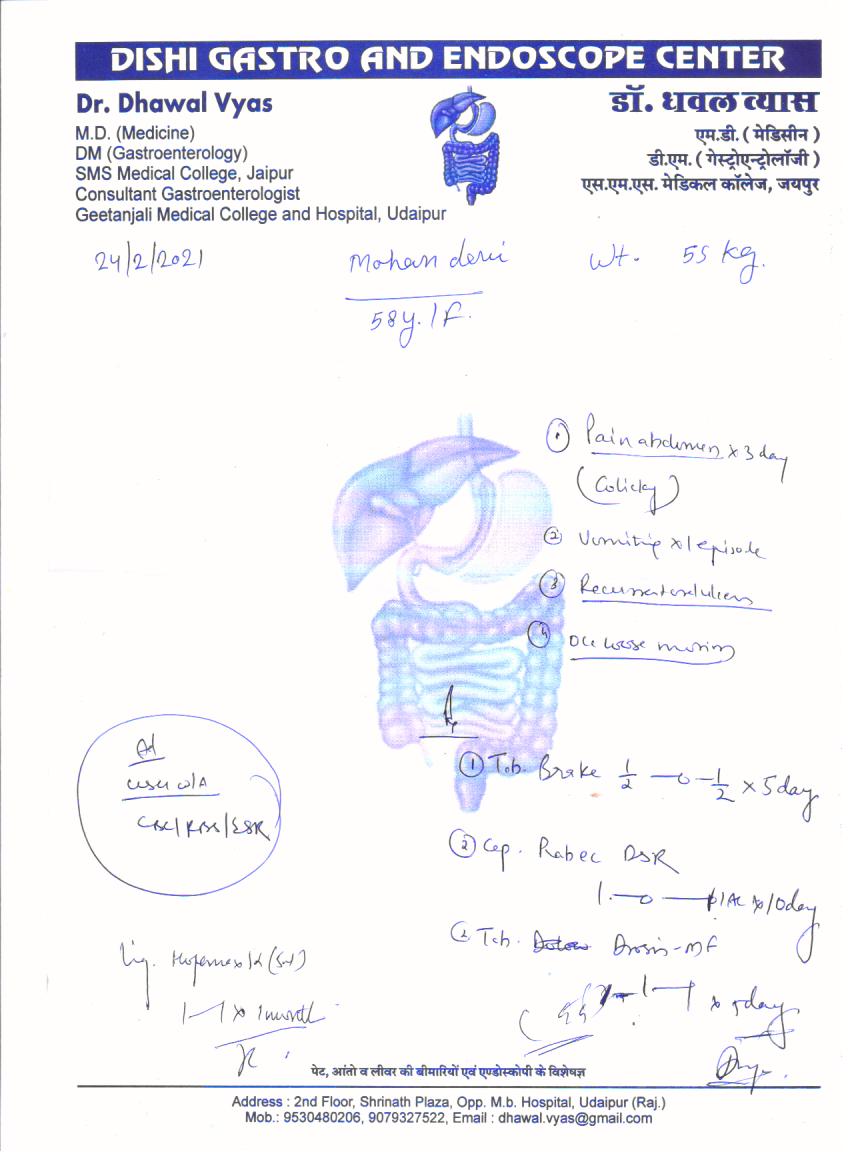 DISHI GASTRO AND ENDOSCOPE CENTER
Dr. Dhawal Vyas
M.D. (Medicine)
DM (Gastroenterology)
SMS Medical College, Jaipur
Consultant Gastroenterologist
Geetanjali Medical College and Hospital, Udaipur
डॉ. धवल व्यास
एम.डी. ( मेडिसीन )
डी.एम. ( गेस्ट्रोएन्ट्रोलॉजी )
एस.एम.एस. मेडिकल कॉलेज, जयपुर
24/2/2021 Mohan devi Wt. 55 kg.
58y./F.
① Pain abdomen x 3 day
(Colicky)
② Vomiting x 1 episode
③ Recurrent oral ulcers
④ loose motion
① Tab. Brake 1/2 —o— 1/2 x 5 day
Ad
USG W/A
CBC/RBS/ESR
② Cap. Rabec DSR
1 —o— AC x 10 day
Tab. Drosin-MF
1 — 1 x 5 day
1—1 x 1 month
पेट, आंतो व लीवर की बीमारियों एवं एण्डोस्कोपी के विशेषज्ञ
Address : 2nd Floor, Shrinath Plaza, Opp. M.b. Hospital, Udaipur (Raj.)
Mob.: 9530480206, 9079327522, Email : dhawal.vyas@gmail.com